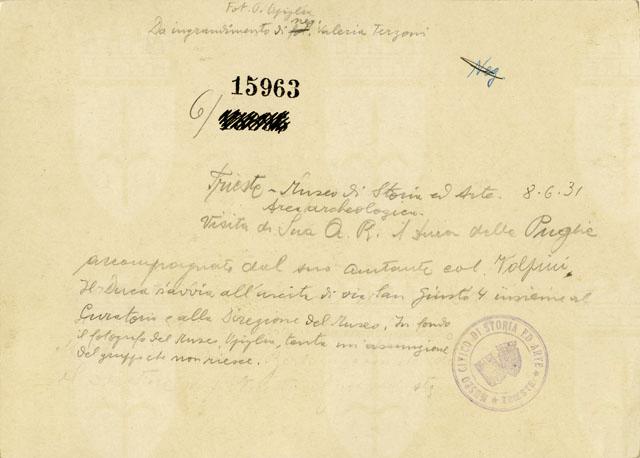 Fot. O. Opiglia
Da ingrandimento di neg. Valeria Terzoni
Neg
15963
6/
Trieste - Museo di Storia ed Arte. 8.6.31
Area archeologica.
Visita di Sua A. R. il Duca delle Puglie
accompagnato dal suo aiutante col. Volpini.
Il Duca s'avvia all'uscita di via San Giusto 4 insieme al
Curatorio e alla Direzione del Museo. In fondo
il fotografo del Museo, Opiglia, tenta un'assunzione
del gruppo che non riesce.
MUSEO CIVICO DI STORIA ED ARTE
TRIESTE